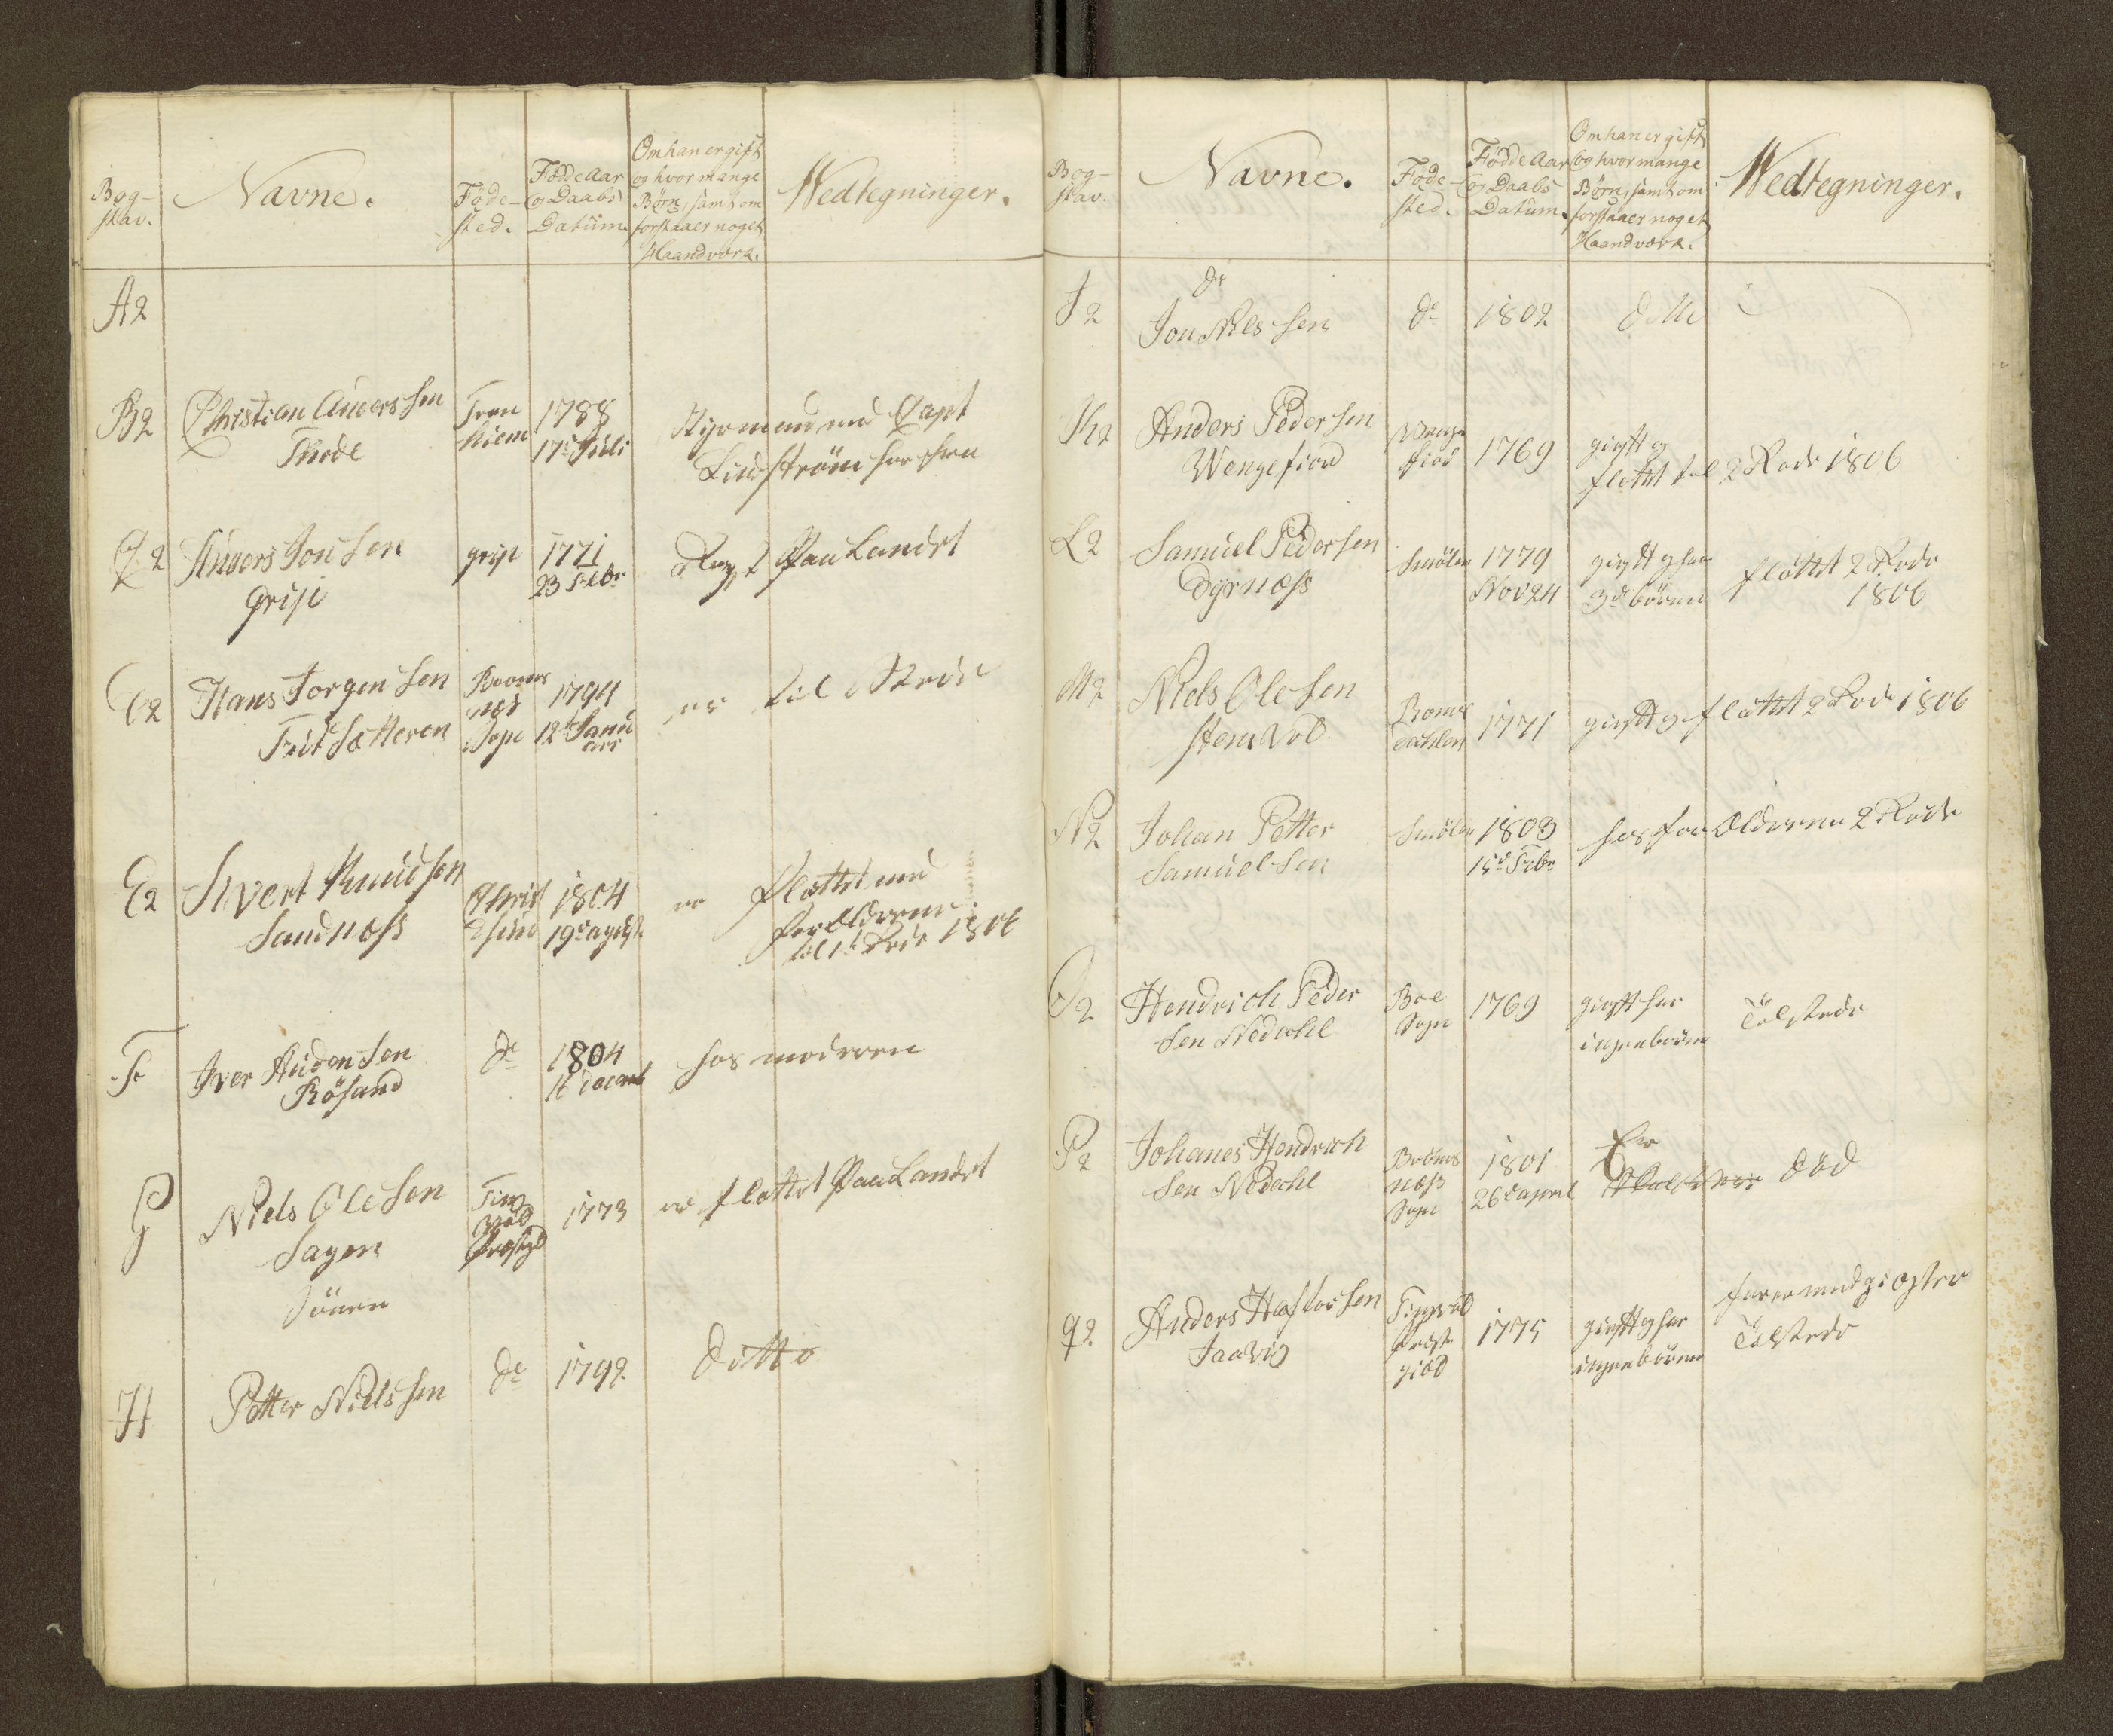 Bog-
stav.
Navne.
Föde-
sted.
Födde Aar
og Daabs
Datum
Om han er gift
og hvor mange
Börn, samt om
forstaaer noget
Haandværk.
Wedtegninger.
A2
B2
Christian Anders sen
Thode
Tron
hiem
1788
17de Juli
Styrmend med Capt
Lindström
C2
Anders Jon Sen
Grip
grip
1771
23 Febr
Pau Landet
D2
Hans Jorgen Sen
FeitSætteren
næs
Sogn
1794
12te Janu
arr
er til Stede
E2
Sivert Knudsen
Sandness
Christ
Sund
1804
19de august
er flöttet med
forÆldrene
til 1te Rode 1806
F
Iver Audensen
Rösand
de
1804
hos moderen
G
Niels Ole Sen
Sagen
Ting
Vold
Præstgd
1773
er flöttet Paa Landet
Sönnen
H
Petter Nielssen
de
1792
ditto
Bog-
stav.
Navne.
Föde-
sted.
Födde Aar
og Daabs
Datum.
Om han er gift
og hvor mange
Börn, samt om
forstaaer noget
Haandværk.
Wedtegninger.
J2
de
Jon Nilssen
de
1802
K2
Anders Peder sen
Wengefiord
Wenge
fiord
1769
gift og
flöttet til 2 Rode 1806
L2
Samuel Pedersen
Dyrness
Smölen
1779
Nov 24
gift og har
3de börn
flöttet 2 Rode
1806
M2
Niels Ole Sen
Romsdahlen
1771
gift og flöttet 2 Rode 1806
N2
Johan Petter
Samuelsen
Smölen
1803
15de Febr
hos forÆldrene 2 Rode
O2
Hendrich Peder
Sen Nedahl
Boe
Sogn
1769
gift har
ingen börn
Tilstede
P2
Johanes Hendrich
Sen Nedahl
næss
Sogn
1801
26de april
Er
död
q2
Anders Hastor Sen
Jaavig
Tingvold
Præste
giæld
1775
gift og har
ingen börn
farer med giægter
Tilstede